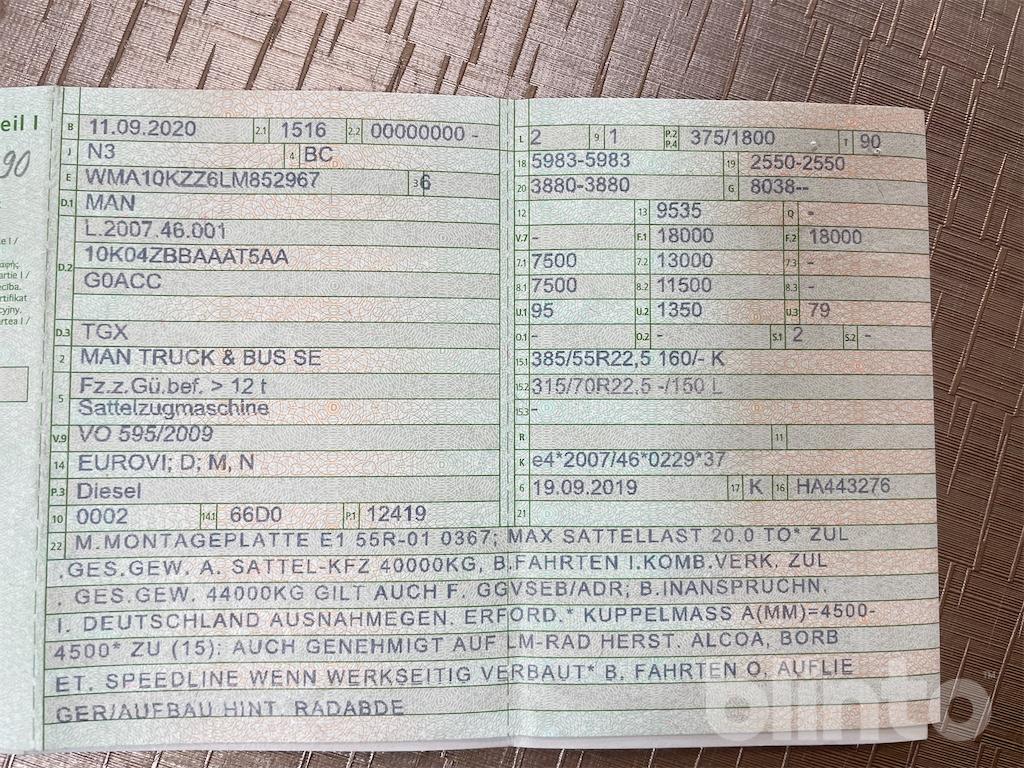 eil I
90
e I /
αφής
artie I /
ecība.
rtifikat
cyjny.
artea I /
B 11.09.2020 2.1 1516 2.2 00000000 -
J N3 4 BC
E WMA10KZZ6LM852967 3 6
D.1 MAN
D.2 L.2007.46.001
10K04ZBBAAAT5AA
G0ACC
D.3 TGX
2 MAN TRUCK & BUS SE
5 Fz.z.Gü.bef. > 12 t
Sattelzugmaschine
V.9 VO 595/2009
14 EUROVI; D; M, N
P.3 Diesel
10 0002 14.1 66D0 P.1 12419
L 2 9 1 P.2 P.4 375/1800 T 90
18 5983-5983 19 2550-2550
20 3880-3880 G 8038--
12 13 9535 Q -
V.7 - F.1 18000 F.2 18000
7.1 7500 7.2 13000 7.3 -
8.1 7500 8.2 11500 8.3 -
U.1 95 U.2 1350 U.3 79
O.1 - O.2 - S.1 2 S.2 -
15.1 385/55R22,5 160/- K
15.2 315/70R22,5 -/150 L
15.3 -
R 11
K e4*2007/46*0229*37
6 19.09.2019 17 K 16 HA443276
21
22 M.MONTAGEPLATTE E1 55R-01 0367; MAX SATTELLAST 20.0 TO* ZUL
.GES.GEW. A. SATTEL-KFZ 40000KG, B.FAHRTEN I.KOMB.VERK. ZUL
. GES.GEW. 44000KG GILT AUCH F. GGVSEB/ADR; B.INANSPRUCHN.
I. DEUTSCHLAND AUSNAHMEGEN. ERFORD.* KUPPELMASS A(MM)=4500-
4500* ZU (15): AUCH GENEHMIGT AUF LM-RAD HERST. ALCOA, BORB
ET. SPEEDLINE WENN WERKSEITIG VERBAUT* B. FAHRTEN O. AUFLIE
GER/AUFBAU HINT. RADABDE
blinto™